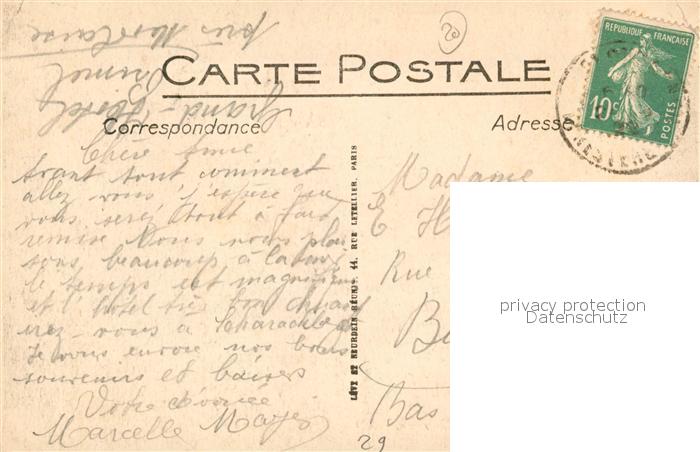 près Morlaix
Primel
Grand-Hôtel
20
CARTE POSTALE
Correspondance
Adresse
REPUBLIQUE FRANÇAISE
10c
POSTES
FINISTERE
Chère Amie
Avant tout comment
allez vous j'espère que
vous serez tout à fait
remise Nous nous plai
sons beaucoup à la mer
le temps est magnifique
et l'hôtel très bon
irez-vous à
Je vous envoie nos bons
souvenirs et baisers
Votre dévouée
Marcelle Mayer
LÉVY ET NEURDEIN RÉUNIS, 44, RUE LETELLIER, PARIS
Madame
E H
Rue
Be
Bas
29
privacy protection
Datenschutz